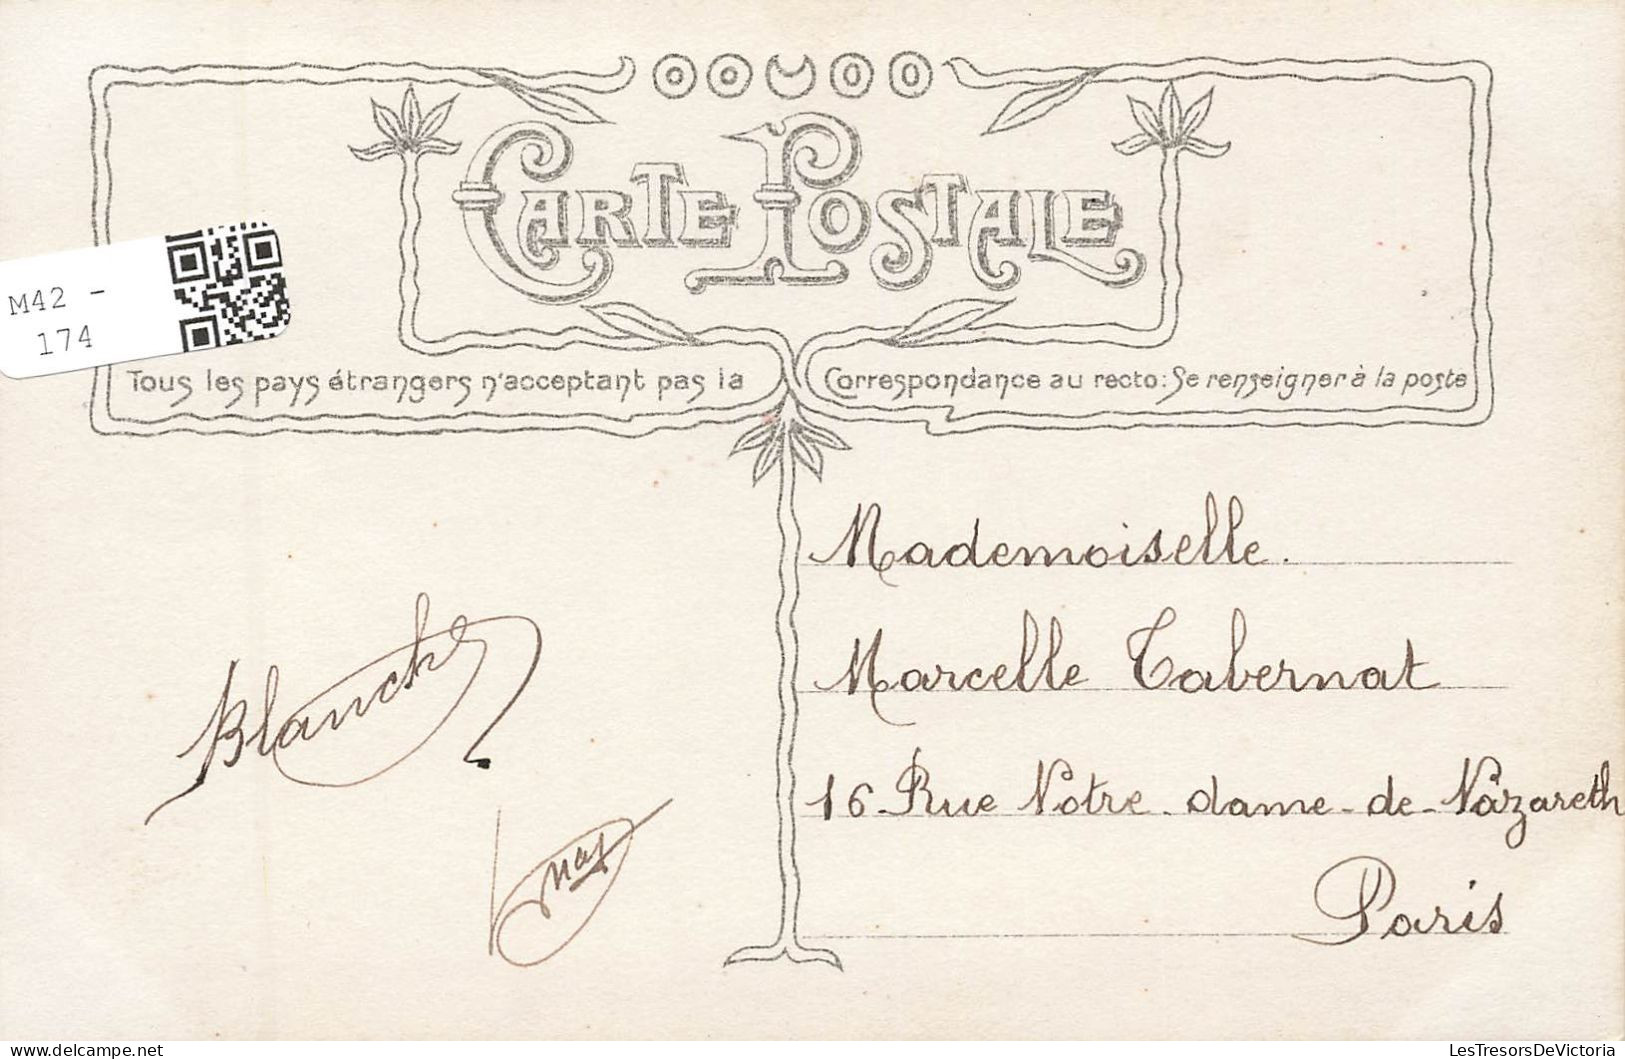 CARTE POSTALE
M42 -
174
Tous les pays étrangers n'acceptant pas la Correspondance au recto: Se renseigner à la poste
Mademoiselle.
Marcelle Tabernat
16 Rue Notre-dame-de-Nazareth
Paris
Blanche
delcampe.net
LesTresorsDeVictoria